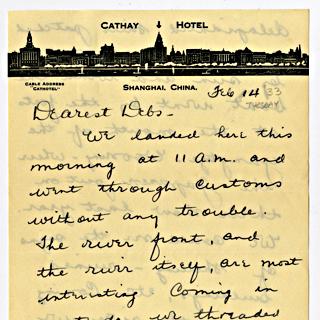 CATHAY HOTEL
CABLE ADDRESS
"CATHOTEL"
SHANGHAI, CHINA.
Feb 14 33
TUESDAY
Dearest Debs-
We landed here this
morning at 11 A.M. and
went through customs
without any trouble.
The river front, and
the river itself, are most
intersting coming in
we threaded